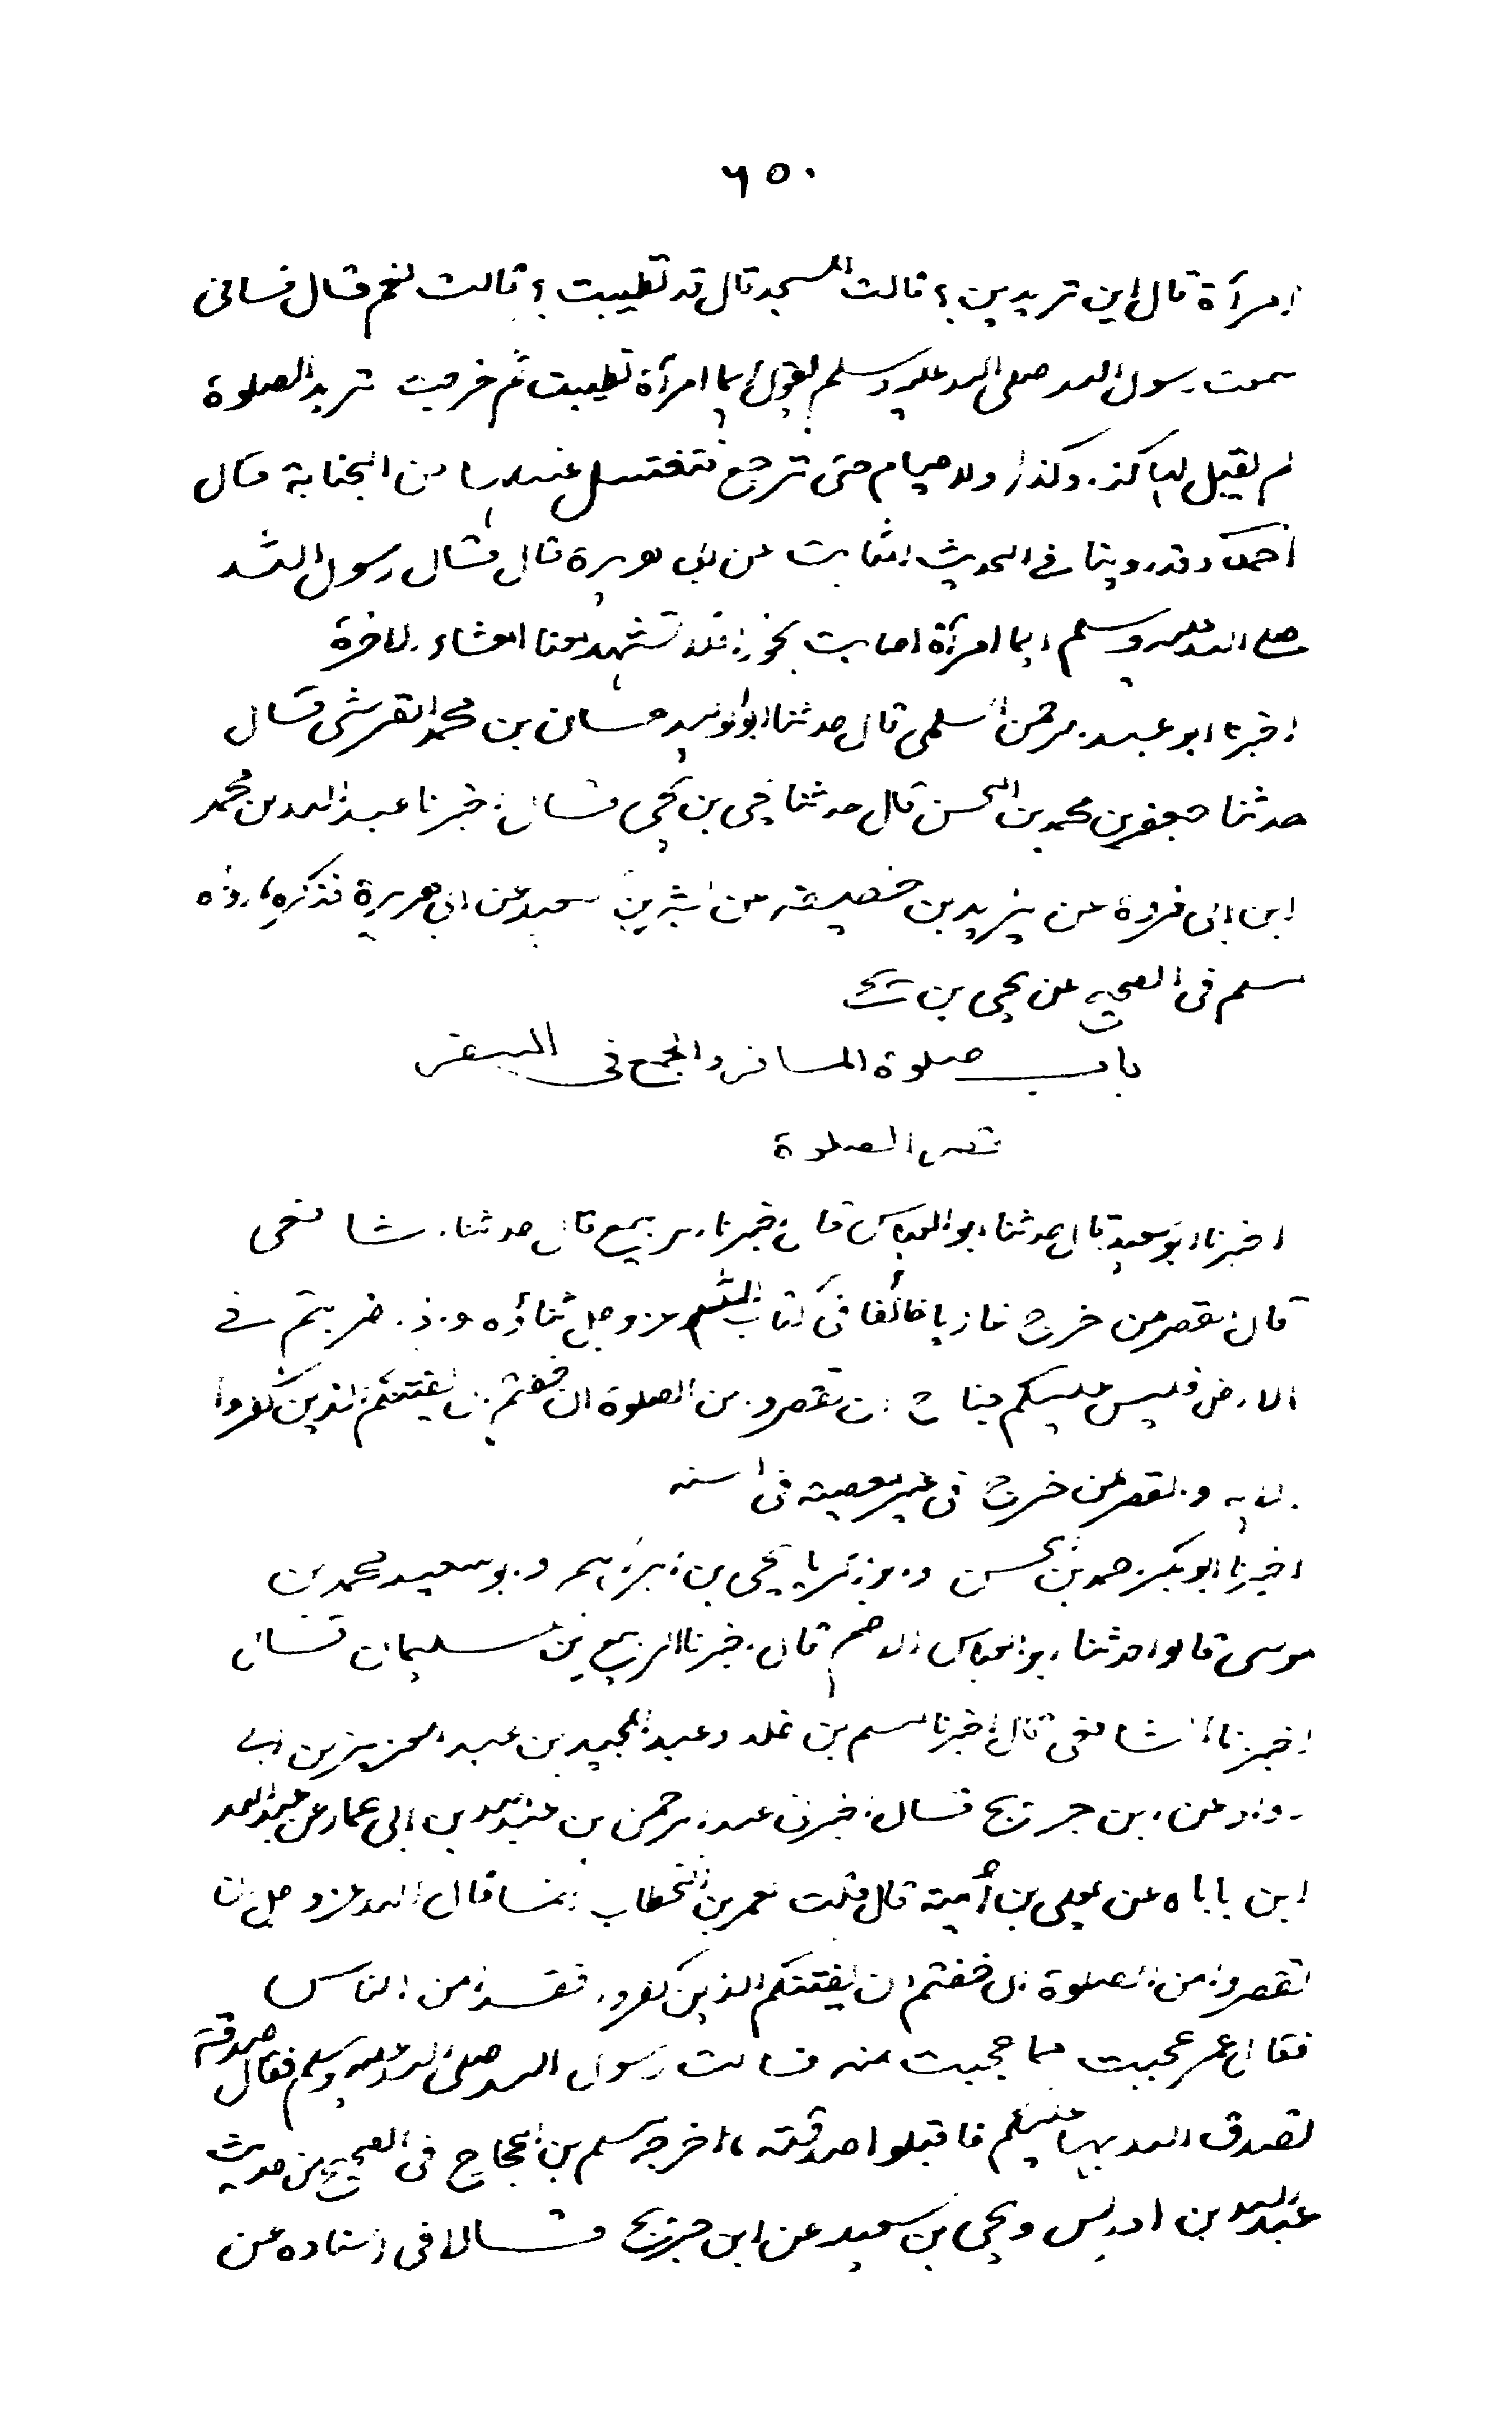 ٦٥٠
امرأة قال اين تريدين؟ قالت المسجد قال قد تطيبت؟ قالت نعم قال فسانى
سمعت رسول الله صلى الله عليه وسلم يقول ايما امرأة تطيبت ثم خرجت تريد الصلوة
لم تقبل لها كذا وكذا ولا صيام حتى ترجع فتغتسل غسلها من الجنابة قال
احمد وقد روينا فى الحديث الثابت عن ابى هريرة قال قال رسول الله
صلى الله عليه وسلم ايما امرأة اصابت بخورا فلا تشهد معنا العشاء الاخرة
اخبرنا ابو عبد الرحمن السلمى قال حدثنا ابو الوليد حسان بن محمد القرشى قال
حدثنا جعفر بن محمد بن الحسن قال حدثنا يحيى بن يحيى قال اخبرنا عبد الله بن محمد
ابن ابى فروة عن يزيد بن خصيفة عن بشر بن سعيد عن ابى هريرة فذكره، رواه
مسلم فى الصحيح عن يحيى بن يحيى
باب صلوة المسافر والجمع فى السفر
قصر الصلوة
اخبرنا ابو سعيد قال حدثنا ابو العباس قال اخبرنا الربيع قال حدثنا الشافعى
قال القصر من خرج غازيا خائفا فى كتاب الله عز وجل ثناؤه واذا ضربتم فى
الارض فليس عليكم جناح ان تقصروا من الصلوة ان خفتم ان يفتنكم الذين كفروا
الاية والقصر لمن خرج فى غير معصية فى السنة
اخبرنا ابو بكر احمد بن الحسن وابو زكريا يحيى بن ابراهيم وابو سعيد محمد بن
موسى قالوا حدثنا ابو العباس الاصم قال اخبرنا الربيع بن سليمان قال
اخبرنا الشافعى قال اخبرنا مسلم بن خلد وعبد المجيد بن عبد العزيز بن ابى
رواد عن ابن جريج قال اخبرنى عبد الرحمن بن عبد الله بن ابى عمار عن عبد الله
ابن باباه عن يعلى بن أمية قال قلت لعمر بن الخطاب انما قال الله عز وجل ان
تقصروا من الصلوة ان خفتم ان يفتنكم الذين كفروا فقد امن الناس
فقال عمر عجبت مما عجبت منه فسالت رسول الله صلى الله عليه وسلم فقال صدقة
تصدق الله بها عليكم فاقبلوا صدقته، اخرجه مسلم بن الحجاج فى الصحيح من حديث
عبد الله بن ادريس ويحيى بن سعيد عن ابن جريج قالا فى اسناده عن